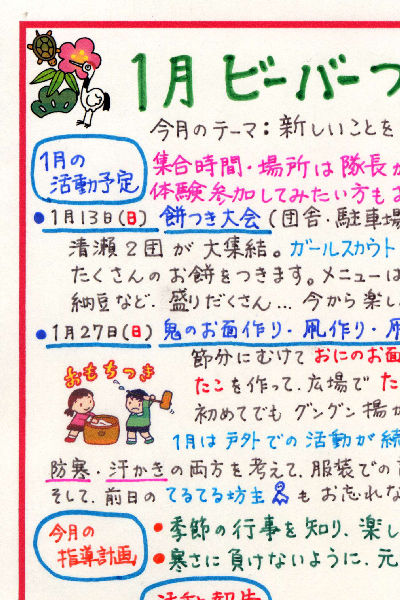 1月 ビーバー
今月のテーマ：新しいことを
1月の
活動予定
集合時間・場所は隊長
体験参加してみたい方も
●1月13日(日) 餅つき大会（団舎・駐車場
清瀬2団が大集結。ガールスカウト
たくさんのお餅をつきます。メニューは
納豆など、盛りだくさん… 今から楽し
●1月27日(日) 鬼のお面作り・凧作り・凧
おもちつき
節分にむけておにのお面
たこを作って、広場でた
初めてでもグングン揚
1月は戸外での活動が続
防寒・汗かきの両方を考えて、服装での
そして、前日のてるてる坊主もお忘れな
今月の
指導計画
●季節の行事を知り、楽し
●寒さに負けないように、元